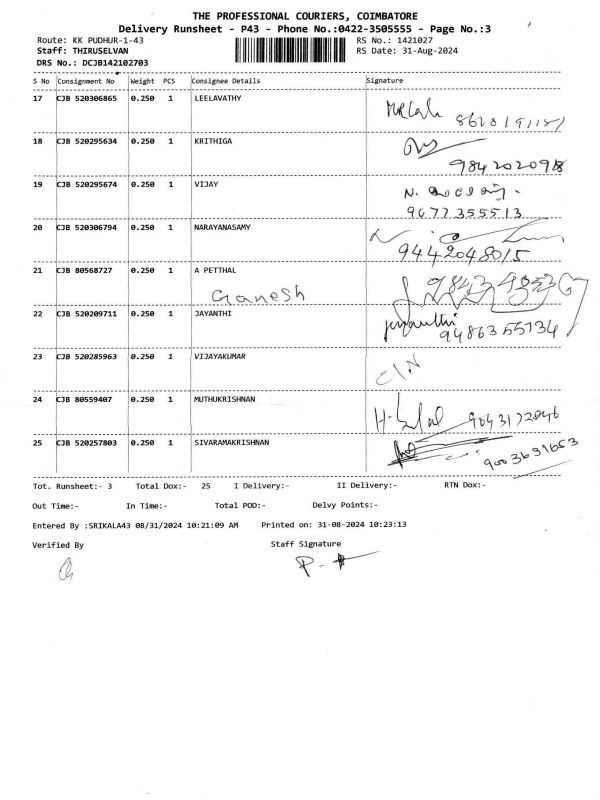 THE PROFESSIONAL COURIERS, COIMBATORE
Delivery Runsheet - P43 - Phone No.:0422-3505555 - Page No.:3
Route: KK PUDHUR-1-43 RS No.: 1421027
Staff: THIRUSELVAN RS Date: 31-Aug-2024
DRS No.: DCJB142102703
S No Consignment No Weight PCS Consignee Details Signature
17 CJB 520306865 0.250 1 LEELAVATHY
18 CJB 520295634 0.250 1 KRITHIGA
9842020918
19 CJB 520295674 0.250 1 VIJAY
9677355513
20 CJB 520306794 0.250 1 NARAYANASAMY
9442048015
21 CJB 80568727 0.250 1 A PETTHAL
Ganesh
22 CJB 520209711 0.250 1 JAYANTHI
Jayanthi
9486355134
23 CJB 520285963 0.250 1 VIJAYAKUMAR
C/N
24 CJB 80559407 0.250 1 MUTHUKRISHNAN
9043172846
25 CJB 520257803 0.250 1 SIVARAMAKRISHNAN
9003691653
Tot. Runsheet:- 3 Total Dox:- 25 I Delivery:- II Delivery:- RTN Dox:-
Out Time:- In Time:- Total POD:- Delvy Points:-
Entered By :SRIKALA43 08/31/2024 10:21:09 AM Printed on: 31-08-2024 10:23:13
Verified By Staff Signature